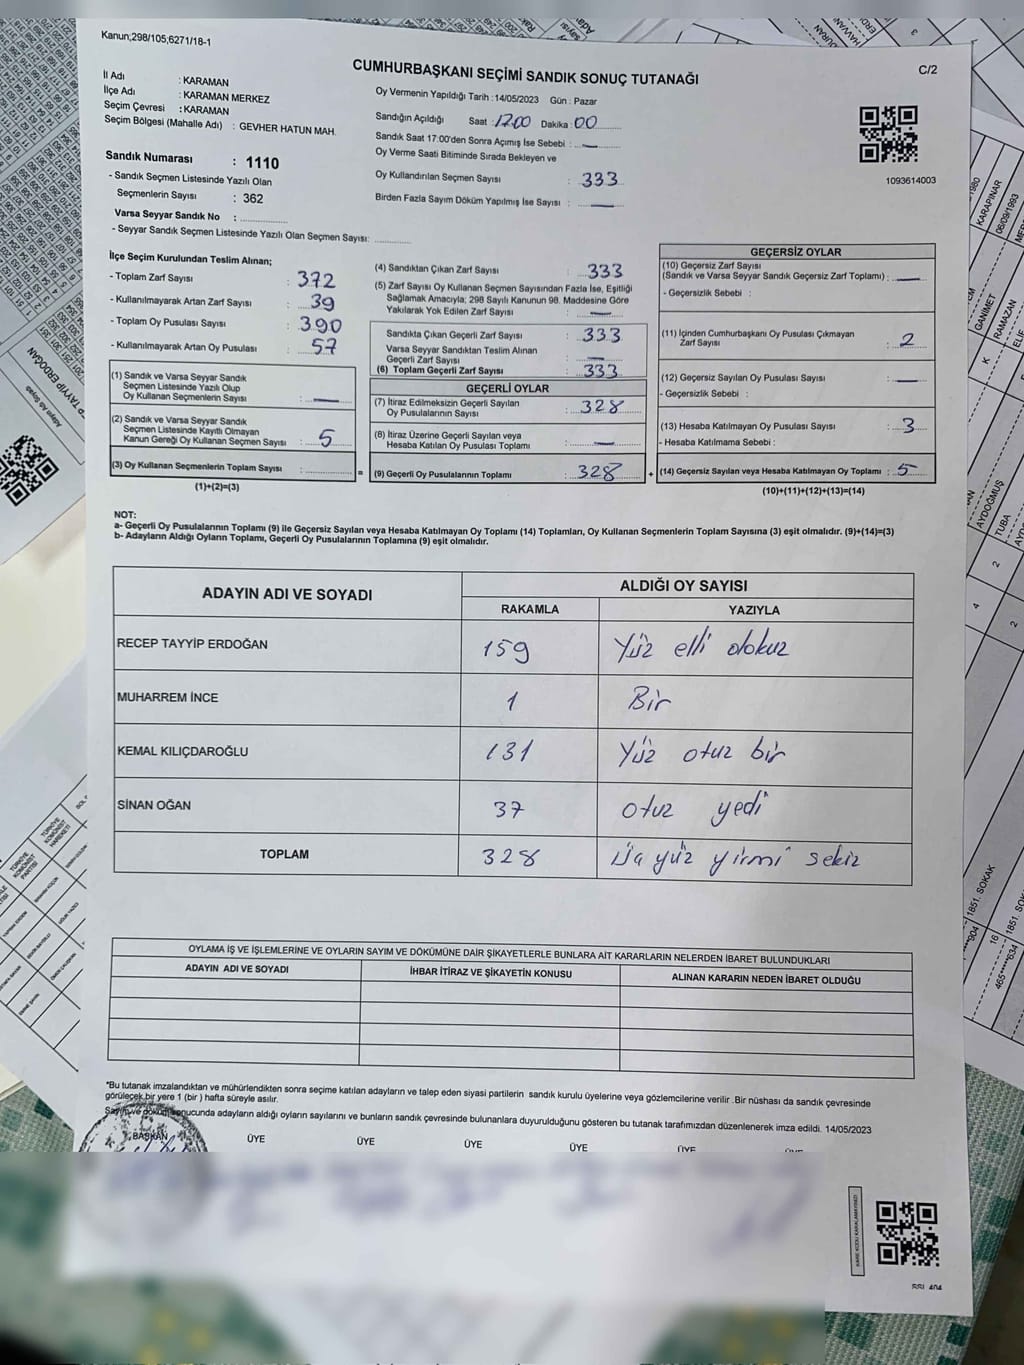 Kanun;298/105;6271/18-1
C/2
CUMHURBAŞKANI SEÇİMİ SANDIK SONUÇ TUTANAĞI
İl Adı : KARAMAN
İlçe Adı : KARAMAN MERKEZ
Seçim Çevresi : KARAMAN
Seçim Bölgesi (Mahalle Adı) : GEVHER HATUN MAH.
Sandık Numarası : 1110
- Sandık Seçmen Listesinde Yazılı Olan
Seçmenlerin Sayısı : 362
Varsa Seyyar Sandık No :
- Seyyar Sandık Seçmen Listesinde Yazılı Olan Seçmen Sayısı:
Oy Vermenin Yapıldığı Tarih : 14/05/2023 Gün : Pazar
Sandığın Açıldığı Saat : 1700 Dakika : 00
Sandık Saat 17:00'den Sonra Açımış İse Sebebi : —
Oy Verme Saati Bitiminde Sırada Bekleyen ve
Oy Kullandırılan Seçmen Sayısı : 333
Birden Fazla Sayım Döküm Yapılmış İse Sayısı : —
1093614003
İlçe Seçim Kurulundan Teslim Alınan;
- Toplam Zarf Sayısı : 372
- Kullanılmayarak Artan Zarf Sayısı : 39
- Toplam Oy Pusulası Sayısı : 390
- Kullanılmayarak Artan Oy Pusulası : 57
(1) Sandık ve Varsa Seyyar Sandık
Seçmen Listesinde Yazılı Olup
Oy Kullanan Seçmenlerin Sayısı : —
(2) Sandık ve Varsa Seyyar Sandık
Seçmen Listesinde Kayıtlı Olmayan
Kanun Gereği Oy Kullanan Seçmen Sayısı : 5
(3) Oy Kullanan Seçmenlerin Toplam Sayısı : =
(1)+(2)=(3)
(4) Sandıktan Çıkan Zarf Sayısı : 333
(5) Zarf Sayısı Oy Kullanan Seçmen Sayısından Fazla İse, Eşitliği
Sağlamak Amacıyla; 298 Sayılı Kanunun 98. Maddesine Göre
Yakılarak Yok Edilen Zarf Sayısı : —
Sandıkta Çıkan Geçerli Zarf Sayısı : 333
Varsa Seyyar Sandıktan Teslim Alınan
Geçerli Zarf Sayısı : —
(6) Toplam Geçerli Zarf Sayısı : 333
GEÇERLİ OYLAR
(7) İtiraz Edilmeksizin Geçerli Sayılan
Oy Pusulalarının Sayısı : 328
(8) İtiraz Üzerine Geçerli Sayılan veya
Hesaba Katılan Oy Pusulası Toplamı : —
(9) Geçerli Oy Pusulalarının Toplamı : 328 +
GEÇERSİZ OYLAR
(10) Geçersiz Zarf Sayısı
(Sandık ve Varsa Seyyar Sandık Geçersiz Zarf Toplamı) : —
- Geçersizlik Sebebi :
(11) İçinden Cumhurbaşkanı Oy Pusulası Çıkmayan
Zarf Sayısı : 2
(12) Geçersiz Sayılan Oy Pusulası Sayısı : —
- Geçersizlik Sebebi :
(13) Hesaba Katılmayan Oy Pusulası Sayısı : 3
- Hesaba Katılmama Sebebi :
(14) Geçersiz Sayılan veya Hesaba Katılmayan Oy Toplamı : 5
(10)+(11)+(12)+(13)=(14)
NOT:
a- Geçerli Oy Pusulalarının Toplamı (9) ile Geçersiz Sayılan veya Hesaba Katılmayan Oy Toplamı (14) Toplamları, Oy Kullanan Seçmenlerin Toplam Sayısına (3) eşit olmalıdır. (9)+(14)=(3)
b- Adayların Aldığı Oyların Toplamı, Geçerli Oy Pusulalarının Toplamına (9) eşit olmalıdır.
ADAYIN ADI VE SOYADI
ALDIĞI OY SAYISI
RAKAMLA YAZIYLA
RECEP TAYYİP ERDOĞAN 159 Yüz elli dokuz
MUHARREM İNCE 1 Bir
KEMAL KILIÇDAROĞLU 131 Yüz otuz bir
SİNAN OĞAN 37 otuz yedi
TOPLAM 328 Üç yüz yirmi sekiz
OYLAMA İŞ VE İŞLEMLERİNE VE OYLARIN SAYIM VE DÖKÜMÜNE DAİR ŞİKAYETLERLE BUNLARA AİT KARARLARIN NELERDEN İBARET BULUNDUKLARI
ADAYIN ADI VE SOYADI İHBAR İTİRAZ VE ŞİKAYETİN KONUSU ALINAN KARARIN NEDEN İBARET OLDUĞU
*Bu tutanak imzalandıktan ve mühürlendikten sonra seçime katılan adayların ve talep eden siyasi partilerin sandık kurulu üyelerine veya gözlemcilerine verilir .Bir nüshası da sandık çevresinde
görülecek bir yere 1 (bir ) hafta süreyle asılır.
Sayım ve döküm sonucunda adayların aldığı oyların sayılarını ve bunların sandık çevresinde bulunanlara duyurulduğunu gösteren bu tutanak tarafımızdan düzenlenerek imza edildi. 14/05/2023
BAŞKAN ÜYE ÜYE ÜYE ÜYE ÜYE
KARAPINAR
06/09/1993
GANİMET
RAMAZAN
AYDOĞMUŞ
TUBA
1851. SOKAK
TAYYİP ERDOĞAN